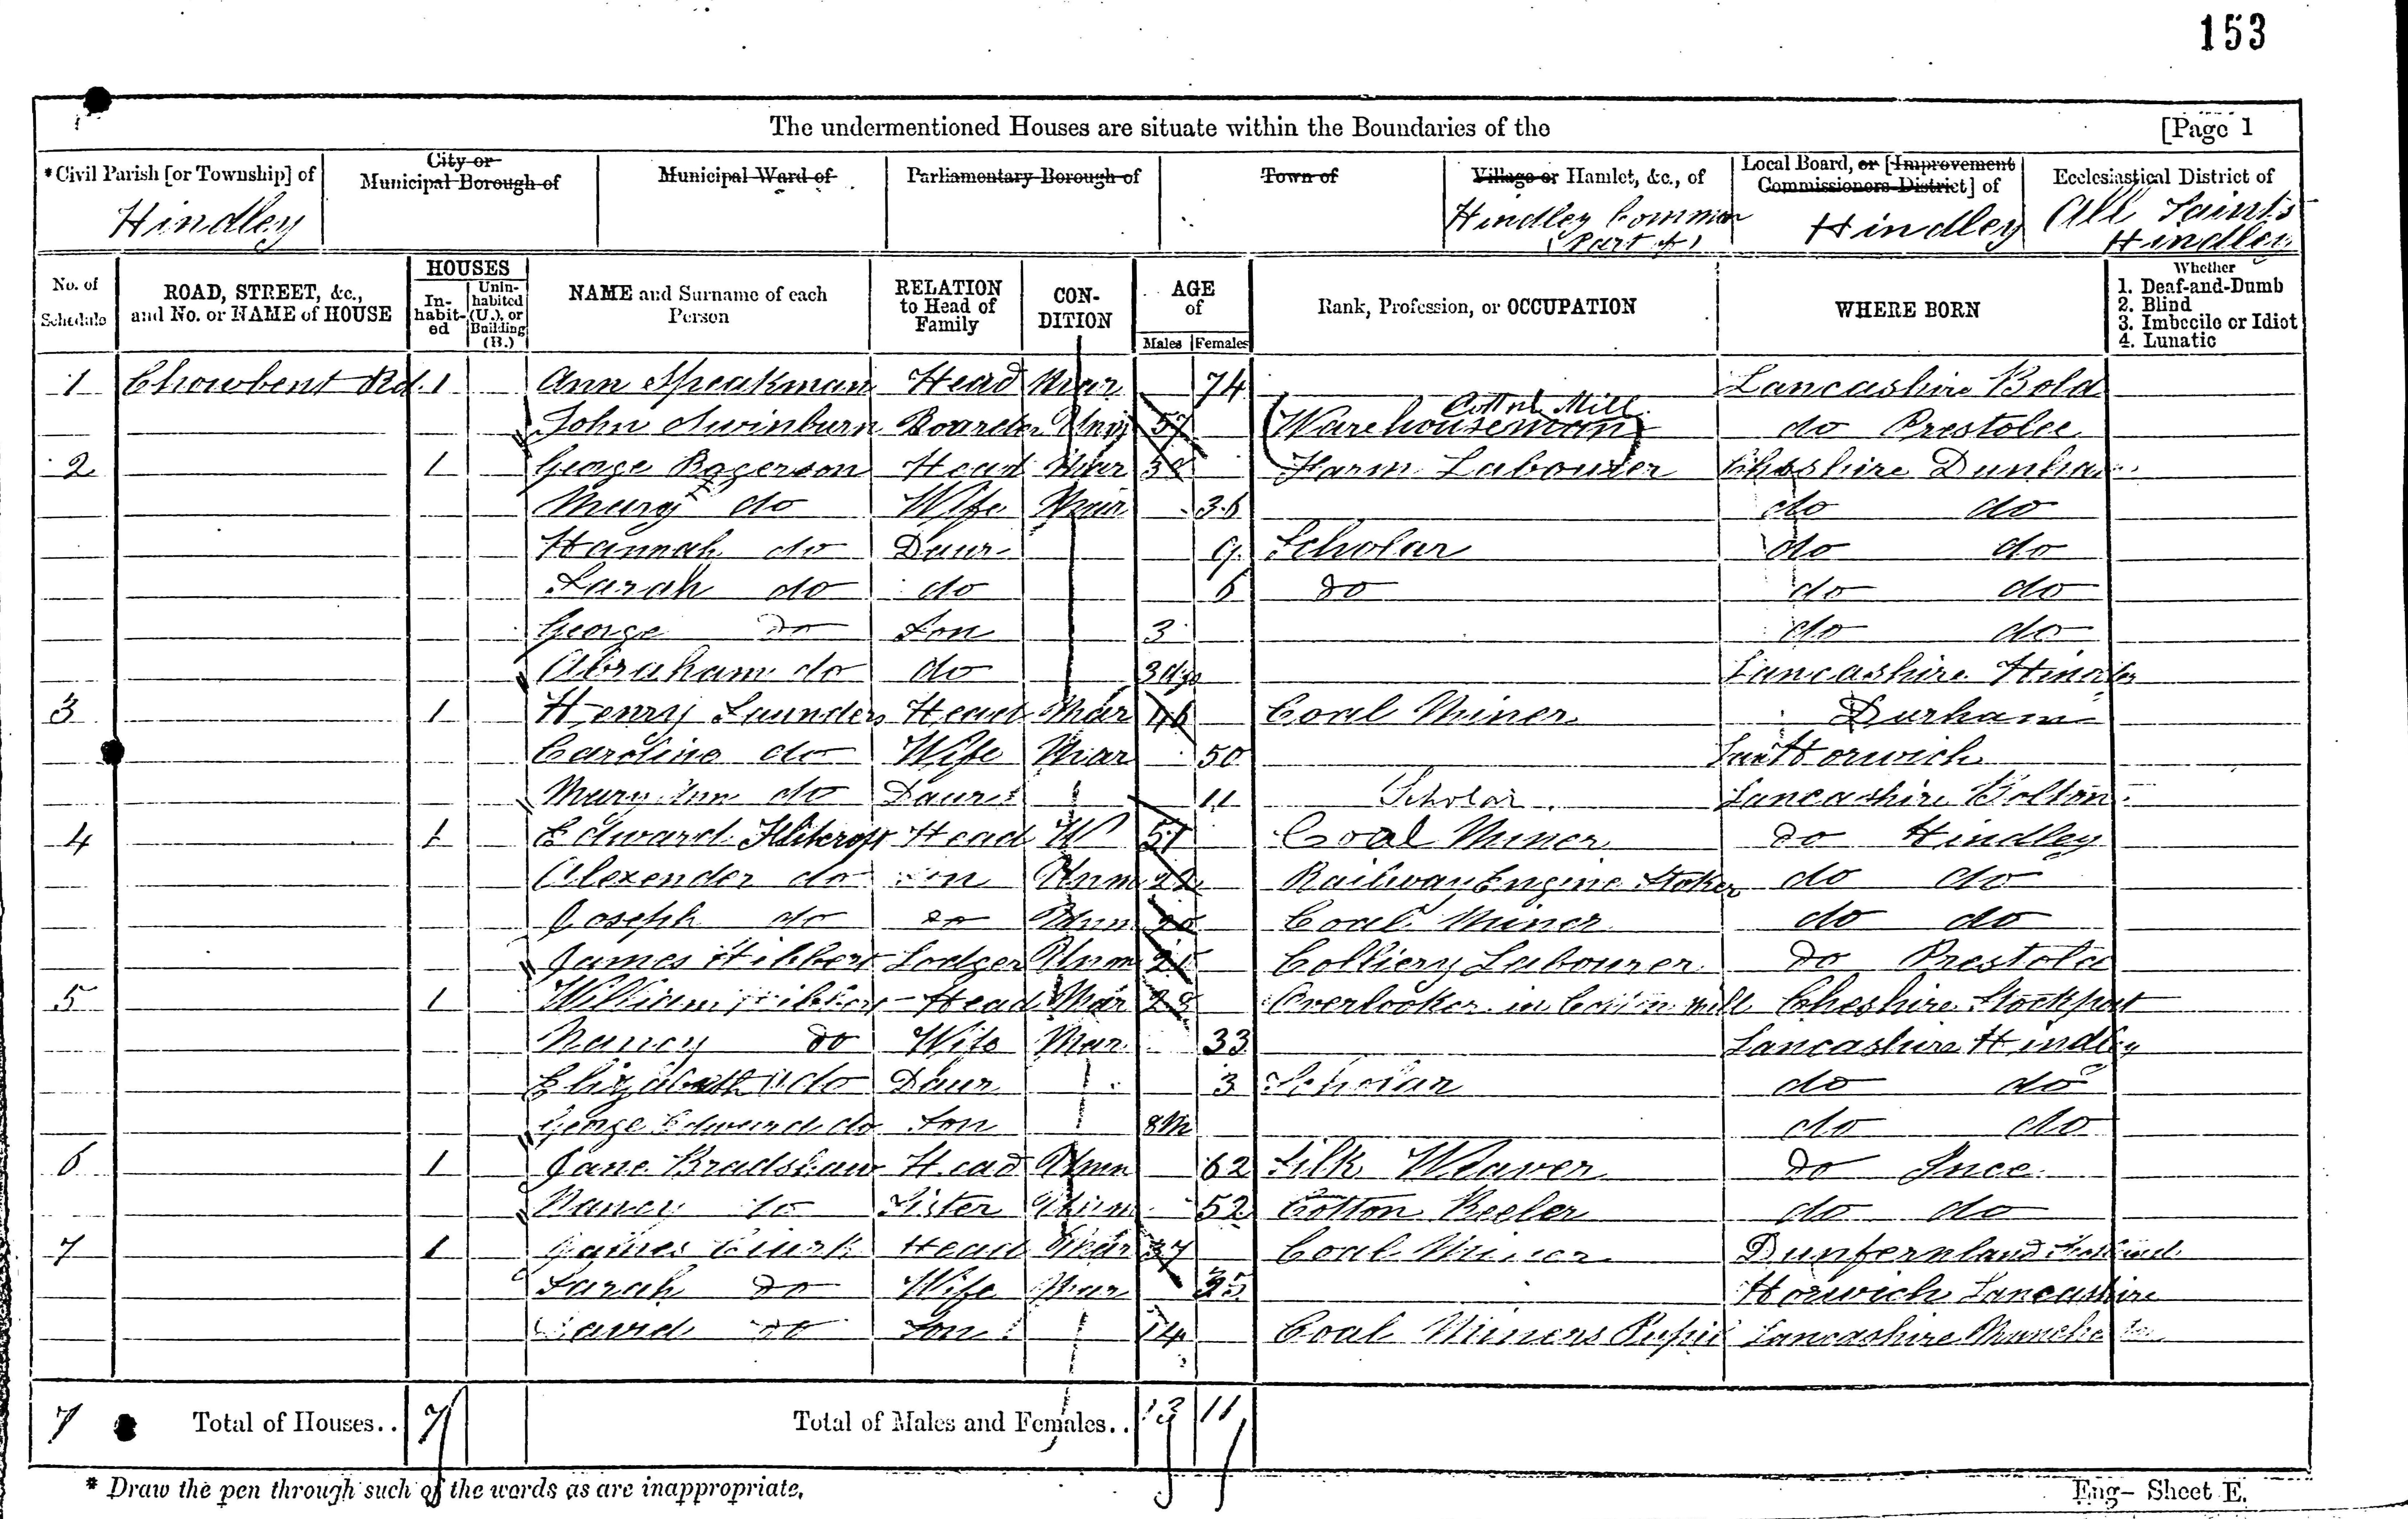 153
The undermentioned Houses are situate within the Boundaries of the [Page 1
*Civil Parish [or Township] of City or Municipal Borough of Municipal Ward of Parliamentary Borough of Town of Village or Hamlet, &c., of Local Board, or [Improvement Commissioners District] of Ecclesiastical District of
Hindley Hindley Common (Part of) Hindley All Saints Hindley
No. of Schedule ROAD, STREET, &c., and No. or NAME of HOUSE HOUSES Inhabited Uninhabited (U.), or Building (B.) NAME and Surname of each Person RELATION to Head of Family CONDITION AGE of Males Females Rank, Profession, or OCCUPATION WHERE BORN Whether 1. Deaf-and-Dumb 2. Blind 3. Imbecile or Idiot 4. Lunatic
1 Chowbent Rd. 1 Ann Speakman Head Mar 74 Lancashire Bold
John Swinburn Boarder Unm 57 Warehouseman Cotton Mill do Prestolee
2 1 George Rogerson Head Mar 38 Farm Labourer Cheshire Dunham
Mary do Wife Mar 36 do do
Hannah do Daur 9 Scholar do do
Sarah do do 6 do do do
George do Son 3 do do
Abraham do do 3 dys Lancashire Hindley
3 1 Henry Saunders Head Mar 46 Coal Miner Durham
Caroline do Wife Mar 50 Lan Horwich
Mary Ann do Daur 11 Scholar Lancashire Bolton
4 1 Edward Flitcroft Head W 51 Coal Miner do Hindley
Alexender do Son Unm 22 Railway Engine Stoker do do
Joseph do do Unm 20 Coal Miner do do
James Hibbert Lodger Unm Colliery Labourer do Prestolee
5 1 William Hibbert Head Mar 28 Overlooker in Cotton mill Cheshire Stockport
Nancy do Wife Mar 33 Lancashire Hindley
Elizabeth do Daur 3 Scholar do do
George Edward do Son 8M do do
6 1 Jane Bradshaw Head Unm 62 Silk Weaver do Ince
Nancy do Sister Unm 52 Cotton Reeler do do
7 1 James Clurk Head Mar 37 Coal Miner Dunfernland Scotland
Sarah do Wife Mar 35 Horwich Lancashire
David do Son 14 Coal Miners Pupil Lancashire Manchester
7 Total of Houses.. 7 Total of Males and Females.. 13 11
* Draw the pen through such of the words as are inappropriate.
Eng- Sheet E.